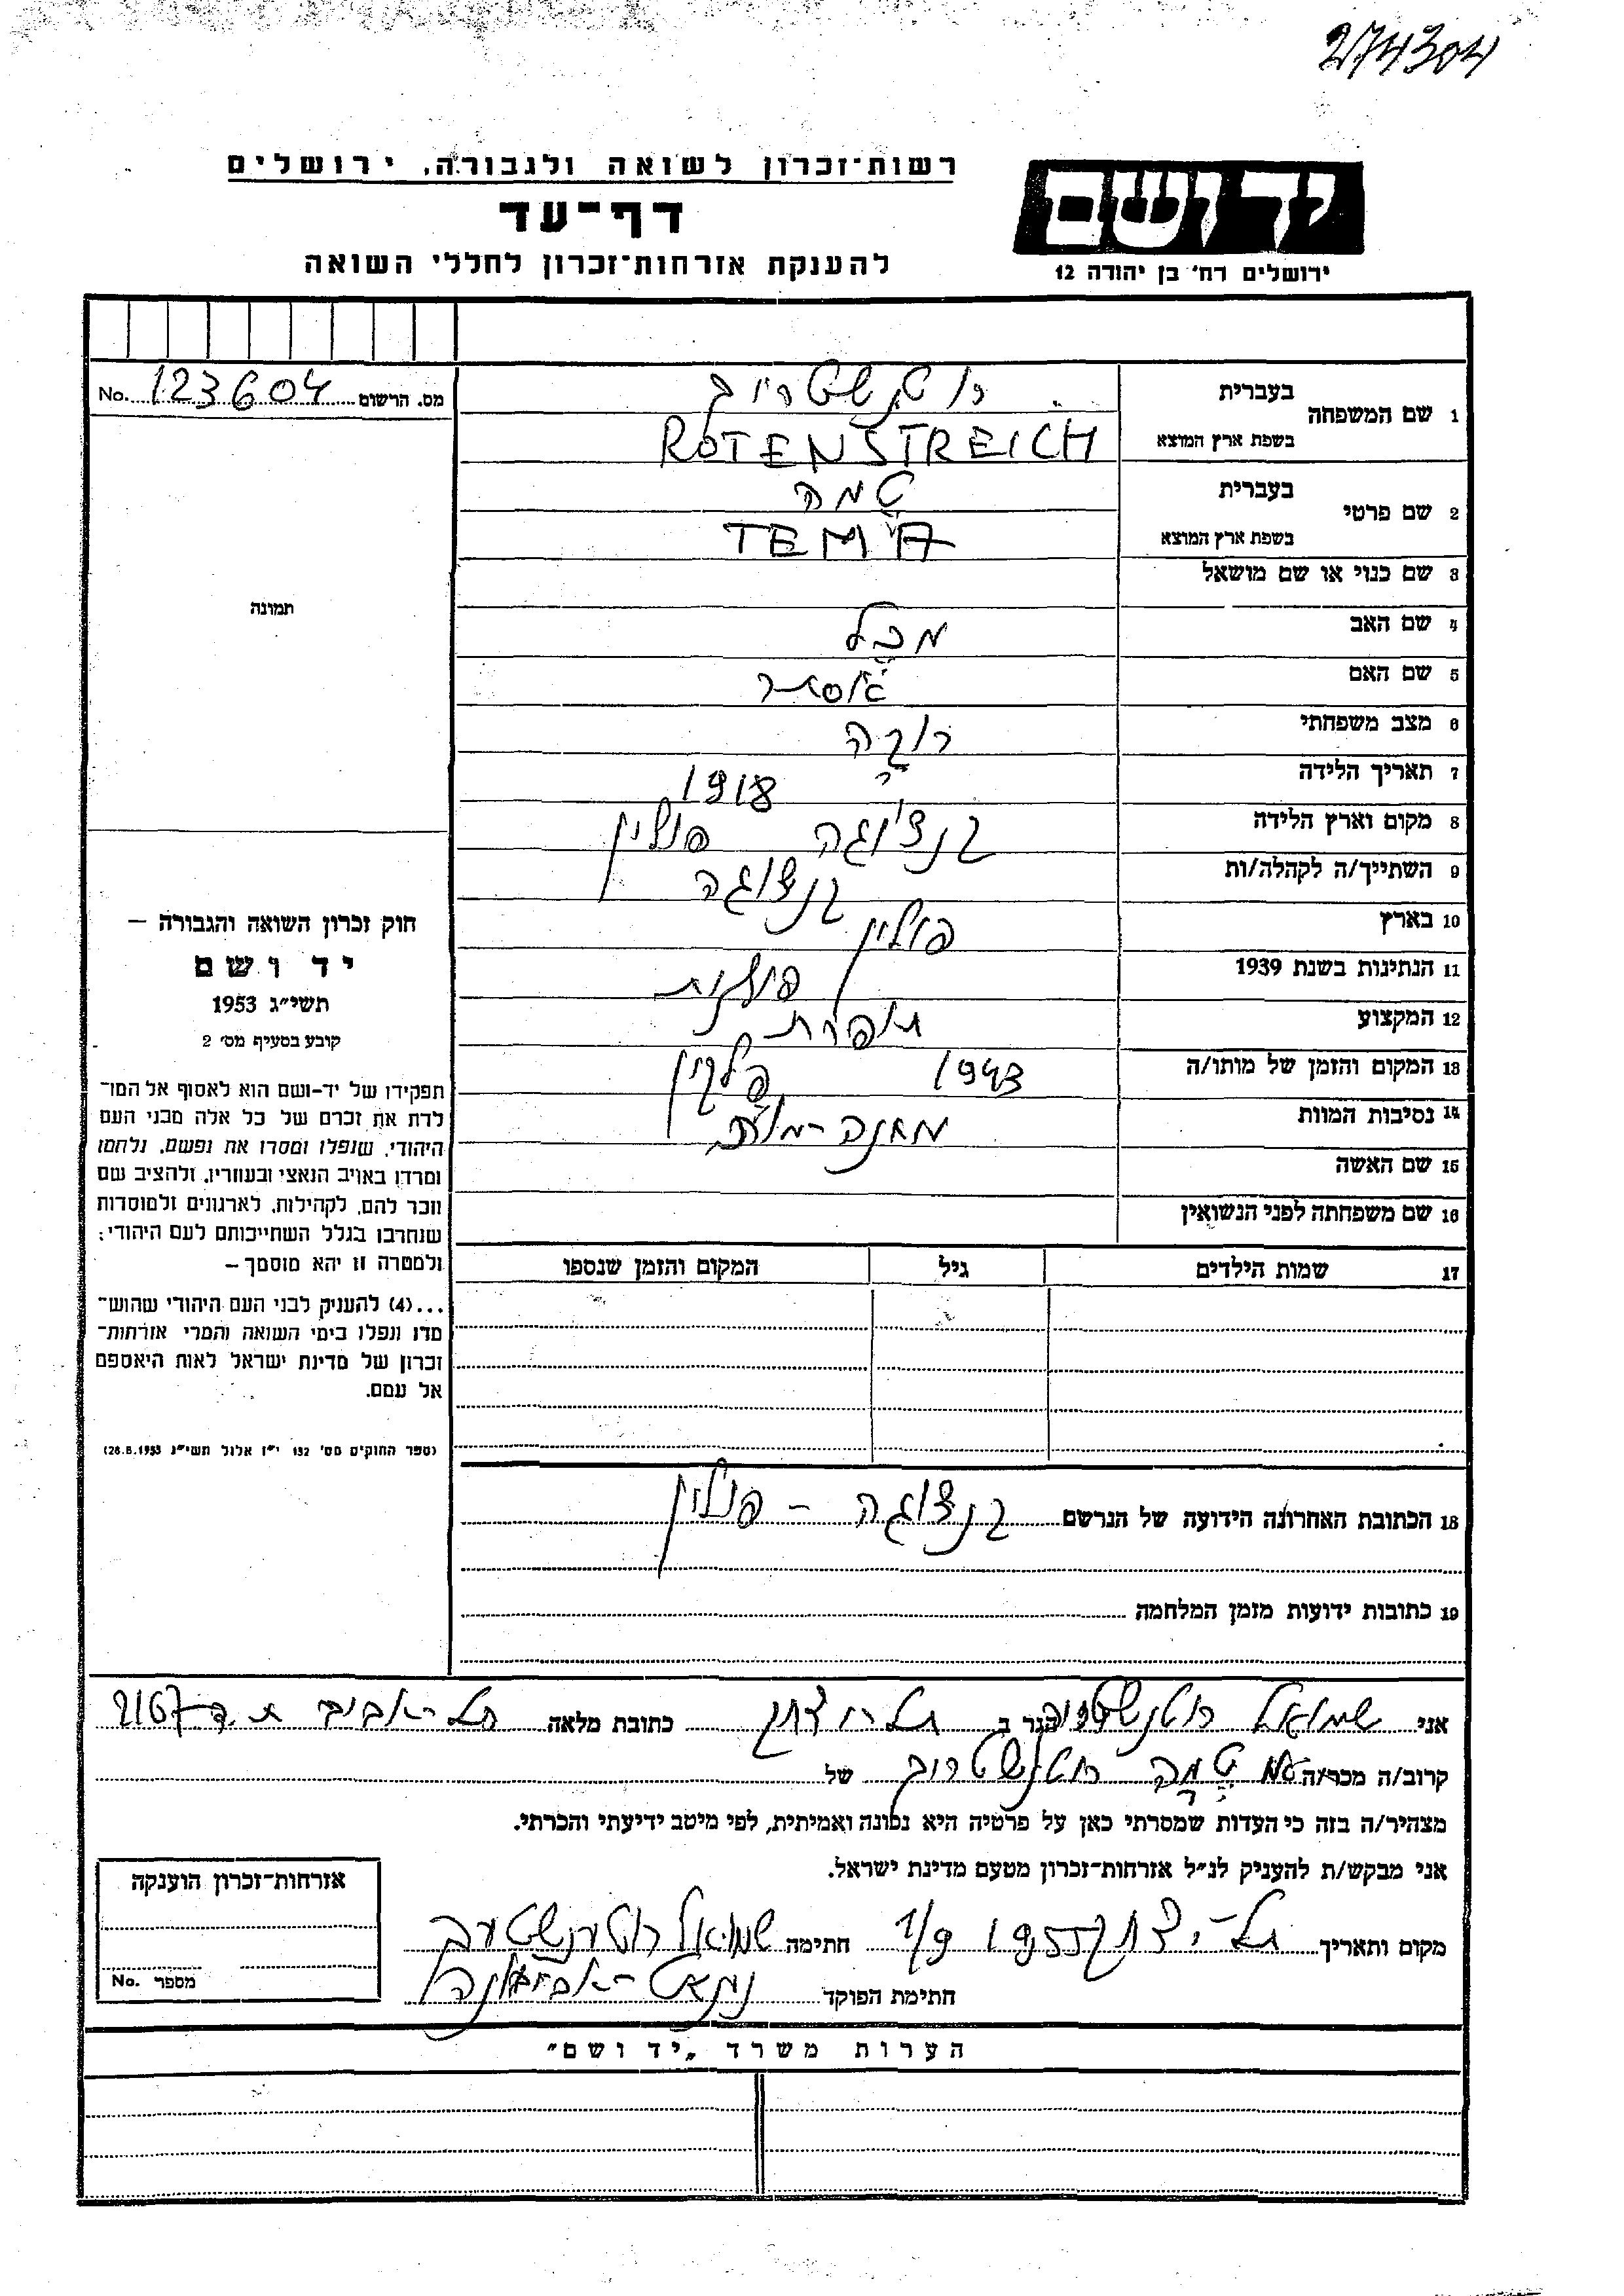 274304
רשות־זכרון לשואה ולגבורה, ירושלים
יד ושם
דף־עד
ירושלים רח' בן יהודה 12
להענקת אזרחות־זכרון לחללי השואה
מס. הרשום 123604 No.
1 שם המשפחה
בעברית רוטנשטרייך
בשפת ארץ המוצא ROTENSTREICH
2 שם פרטי
בעברית טמה
בשפת ארץ המוצא TEMA
3 שם כנוי או שם מושאל
4 שם האב מכל
5 שם האם אסתר
6 מצב משפחתי רוקה
7 תאריך הלידה 1918
8 מקום וארץ הלידה קנצ'וגה פולין
9 השתייך/ה לקהלה/ות קנצוגה
10 בארץ פולין
11 הנתינות בשנת 1939 פולנית
12 המקצוע תופרת
13 המקום והזמן של מותו/ה 1943
14 נסיבות המוות
15 שם האשה
16 שם משפחתה לפני הנשואין
17 שמות הילדים גיל המקום והזמן שנספו
18 הכתובת האחרונה הידועה של הנרשם קנצוגה – פולין
19 כתובות ידועות מזמן המלחמה
תמונה
חוק זכרון השואה והגבורה –
יד ושם
תשי״ג 1953
קובע בסעיף מס׳ 2
תפקידו של יד-ושם הוא לאסוף אל המו־
לדת את זכרם של כל אלה מבני העם
היהודי, שנפלו ומסרו את נפשם, נלחמו
ומרדו באויב הנאצי ובעוזריו, ולהציב שם
וזכר להם, לקהילות, לארגונים ולמוסדות
שנחרבו בגלל השתייכותם לעם היהודי;
ולמטרה זו יהא מוסמך –
...(4) להעניק לבני העם היהודי שהוש־
מדו ונפלו בימי השואה והמרי אזרחות־
זכרון של מדינת ישראל לאות היאספם
אל עמם.
(ספר החוקים מס׳ 132 י״ז אלול תשי״ג 28.8.1953)
אני שמואל רוטנשטרייך הגר ב תל-יצחק כתובת מלאה תל-אביב ת.ד.
קרוב/ה מכר/ה טמה רוטנשטרייך של
מצהיר/ה בזה כי העדות שמסרתי כאן על פרטיה היא נכונה ואמיתית, לפי מיטב ידיעתי והכרתי.
אני מבקש/ת להעניק לנ״ל אזרחות־זכרון מטעם מדינת ישראל.
מקום ותאריך תל-יצחק 1/9 1955 חתימה שמואל רוטנשטרייך
חתימת הפוקד
אזרחות־זכרון הוענקה
מספר No.
הערות משרד „יד ושם״